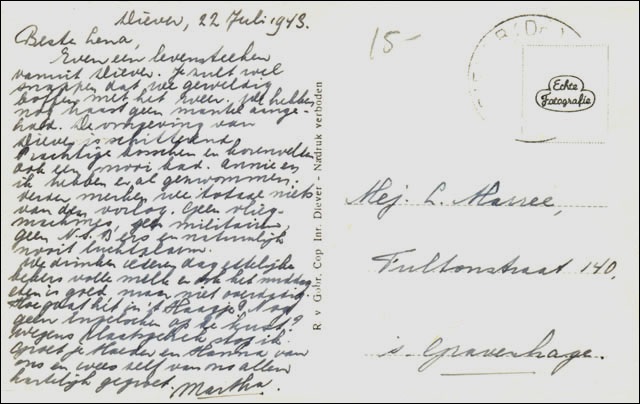 Diever, 22 Juli 1943.
Beste Lena,
Even een levensteeken
vanuit Diever. Je zult wel
snappen dat we geweldig
boffen met het weer. We hebben
nog haast geen mantel aange-
had. De omgeving van
Diever is schitterend
Prachtige bosschen en korenvelden
ook een mooi bad. Annie en
ik hebben er al gezwommen.
Verder merken we totaal niets
van den oorlog. Geen vlieg-
machines, geen militairen
geen N.S.B.ers en natuurlijk
nooit luchtalarm.
We drinken iederen dag ettelijke
bekers volle melk en ook het middag
eten is goed maar niet overdadig.
Hoe gaat het in 't Haagje? Nog
geen Engelschen op de kust?
Wegens plaatsgebrek stop ik.
Groet je Moeder en Hanna van
ons en wees zelf van ons allen
hartelijk gegroet. Martha.
R. v. Gohr, Cop. Inr. Diever - Nadruk verboden
15-
Echte
Fotografie
Mej. L. Marree,
Fultonstraat 140,
's Gravenhage.